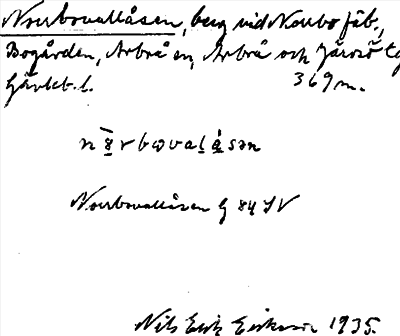 Norrbovallåsen, berg vid Norrbo fäb.,
Bogården, Arbrå sn, Arbrå och Järvsö tg
Gävleb. l. 369 m.
Norrbovallåsen G 84 SV
Nils Erik Eriksson 1935.